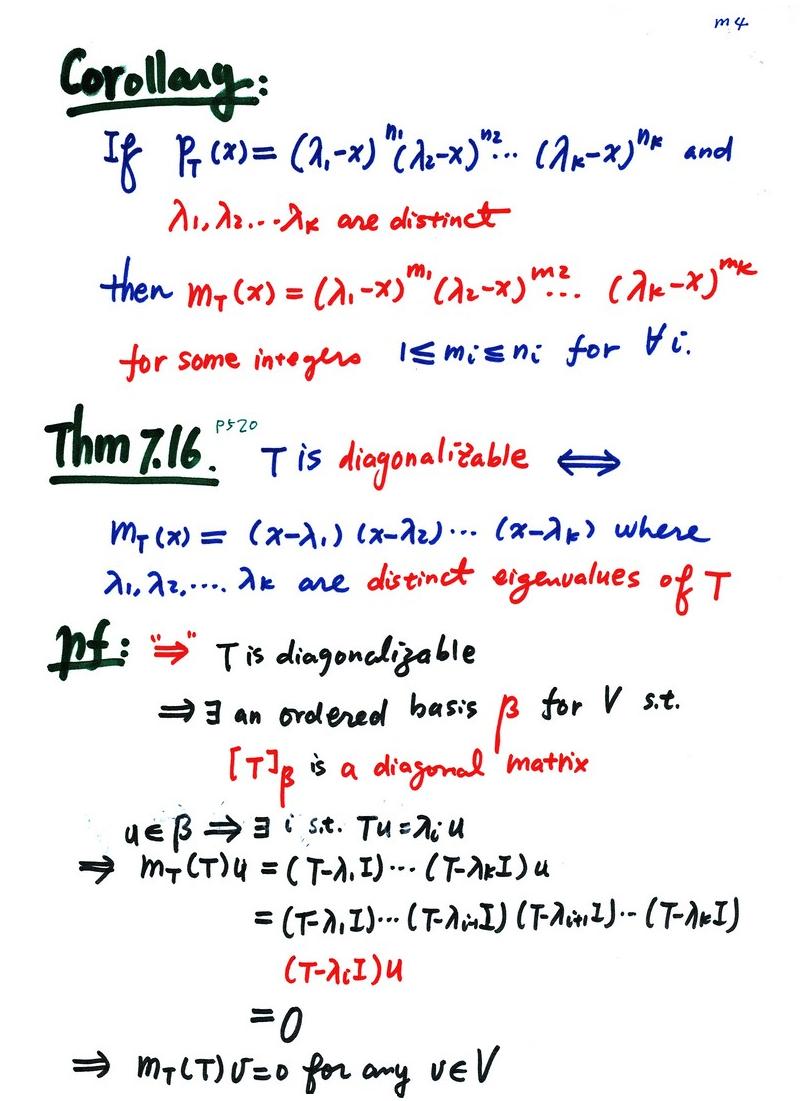 m4
Corollary:
If P_T(x) = (λ₁-x)^{n₁} (λ₂-x)^{n₂} ··· (λ_k-x)^{n_k} and
λ₁, λ₂ ... λ_k are distinct
then m_T(x) = (λ₁-x)^{m₁} (λ₂-x)^{m₂} ... (λ_k-x)^{m_k}
for some integers 1 ≤ m_i ≤ n_i for ∀i.
Thm 7.16. P520 T is diagonalizable ⟺
m_T(x) = (x-λ₁) (x-λ₂) ··· (x-λ_k) where
λ₁, λ₂, .... λ_k are distinct eigenvalues of T
pf: "⇒" T is diagonalizable
⇒ ∃ an ordered basis β for V s.t.
[T]_β is a diagonal matrix
u ∈ β ⇒ ∃ i s.t. Tu = λ_i u
⇒ m_T(T)u = (T-λ₁I) ··· (T-λ_kI)u
= (T-λ₁I) ··· (T-λ_{i-1}I) (T-λ_{i+1}I) ·· (T-λ_kI)
(T-λ_iI)u
= 0
⇒ m_T(T)v = 0 for any v ∈ V